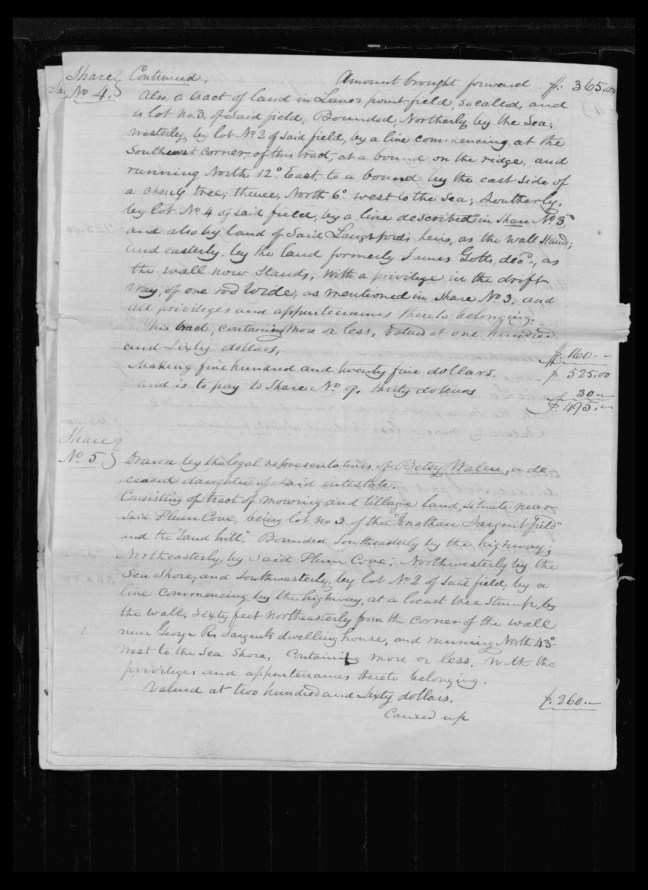 Share Continued. Amount brought forward $. 365.00
No 4. Also, a tract of land in Lanes point field, so called, and
is lot no. 3. of said field, Bounded, Northerly by the Sea;
westerly, by lot No 2 of said field, by a line commencing at the
Southeast corner, of this tract, at a bound on the ridge, and
running North 12° East, to a bound by the east side of
a cherry tree; thence, North 6° west to the Sea; Southerly,
by lot No 4 of said field, by a line described in Share No 3
and also by land of said Langsford's heirs, as the wall stands;
and easterly, by the land formerly James Gotts, decd., as
the wall now stands; with a privilege in the drift
way, of one rod wide, as mentioned in Share No 3, and
all privileges and appurtenances thereto belonging.
This tract, containing more or less, valued at one hundred
and sixty dollars, $. 160.--
Making five hundred and twenty five dollars. $. 525.00
and is to pay to Share No 9. thirty dollars 30.00
$. 495.--
Share
No 5 Drawn by the legal representatives of Betsy Walen, a de
ceased daughter of said intestate.
Consisting of tract of mowing and tillage land, situate near
said Plum Cove, being lot no 3 of the "Jonathan Sargent field"
and the "Sand hill." Bounded Southeasterly by the highway;
Northeasterly, by said Plum Cove; Northwesterly by the
Sea Shore, and Southwesterly, by lot No 2 of said field, by a
line commencing by the highway, at a locust tree stump, by
the wall, sixty feet northeasterly from the corner of the wall
near George R. Sargents dwelling house, and running North 43°
west to the Sea Shore. Containing more or less, with the
privileges and appurtenances thereto belonging.
Valued at two hundred and sixty dollars. $. 260.--
Carried up